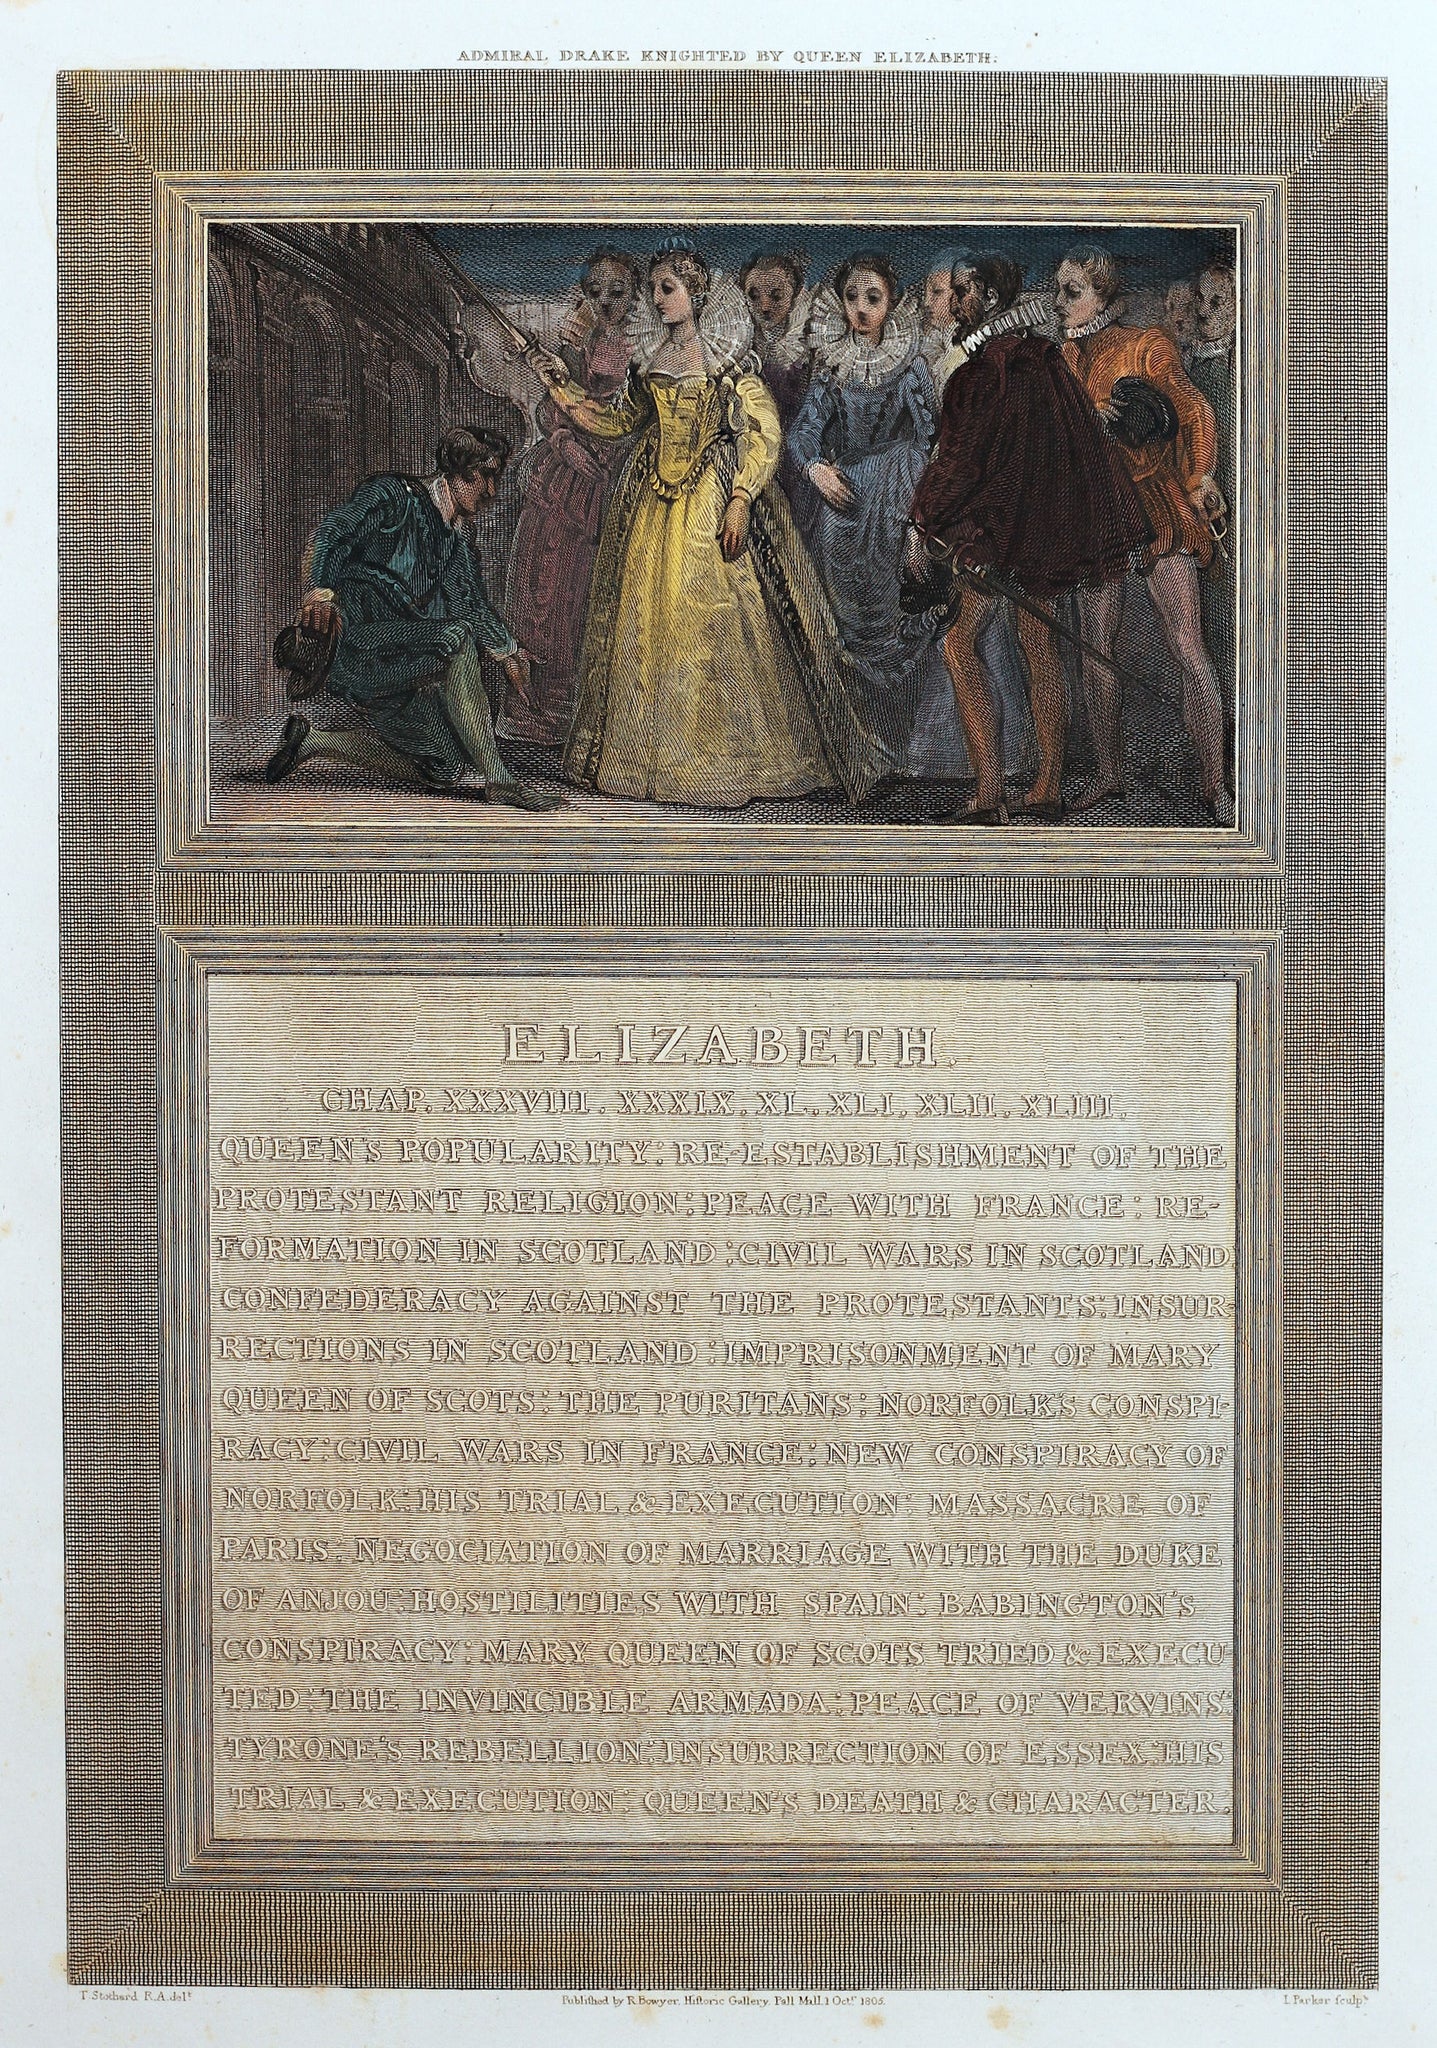 ADMIRAL DRAKE KNIGHTED BY QUEEN ELIZABETH.
ELIZABETH.
CHAP. XXXVIII. XXXIX. XL. XLI. XLII. XLIII.
QUEEN'S POPULARITY: RE-ESTABLISHMENT OF THE
PROTESTANT RELIGION: PEACE WITH FRANCE: RE-
FORMATION IN SCOTLAND: CIVIL WARS IN SCOTLAND
CONFEDERACY AGAINST THE PROTESTANTS: INSUR-
RECTIONS IN SCOTLAND: IMPRISONMENT OF MARY
QUEEN OF SCOTS: THE PURITANS: NORFOLK'S CONSPI-
RACY: CIVIL WARS IN FRANCE: NEW CONSPIRACY OF
NORFOLK: HIS TRIAL & EXECUTION: MASSACRE OF
PARIS: NEGOCIATION OF MARRIAGE WITH THE DUKE
OF ANJOU: HOSTILITIES WITH SPAIN: BABINGTON'S
CONSPIRACY: MARY QUEEN OF SCOTS TRIED & EXECU
TED: THE INVINCIBLE ARMADA: PEACE OF VERVINS:
TYRONE'S REBELLION: INSURRECTION OF ESSEX: HIS
TRIAL & EXECUTION: QUEEN'S DEATH & CHARACTER.
T. Stothard R.A. delt
Published by R. Bowyer, Historic Gallery, Pall Mall, 1 Octr 1805.
I. Parker sculpt